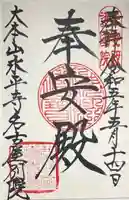 奉拝 令和五年五月十四日
奉安殿
大本山永平寺名古屋別院